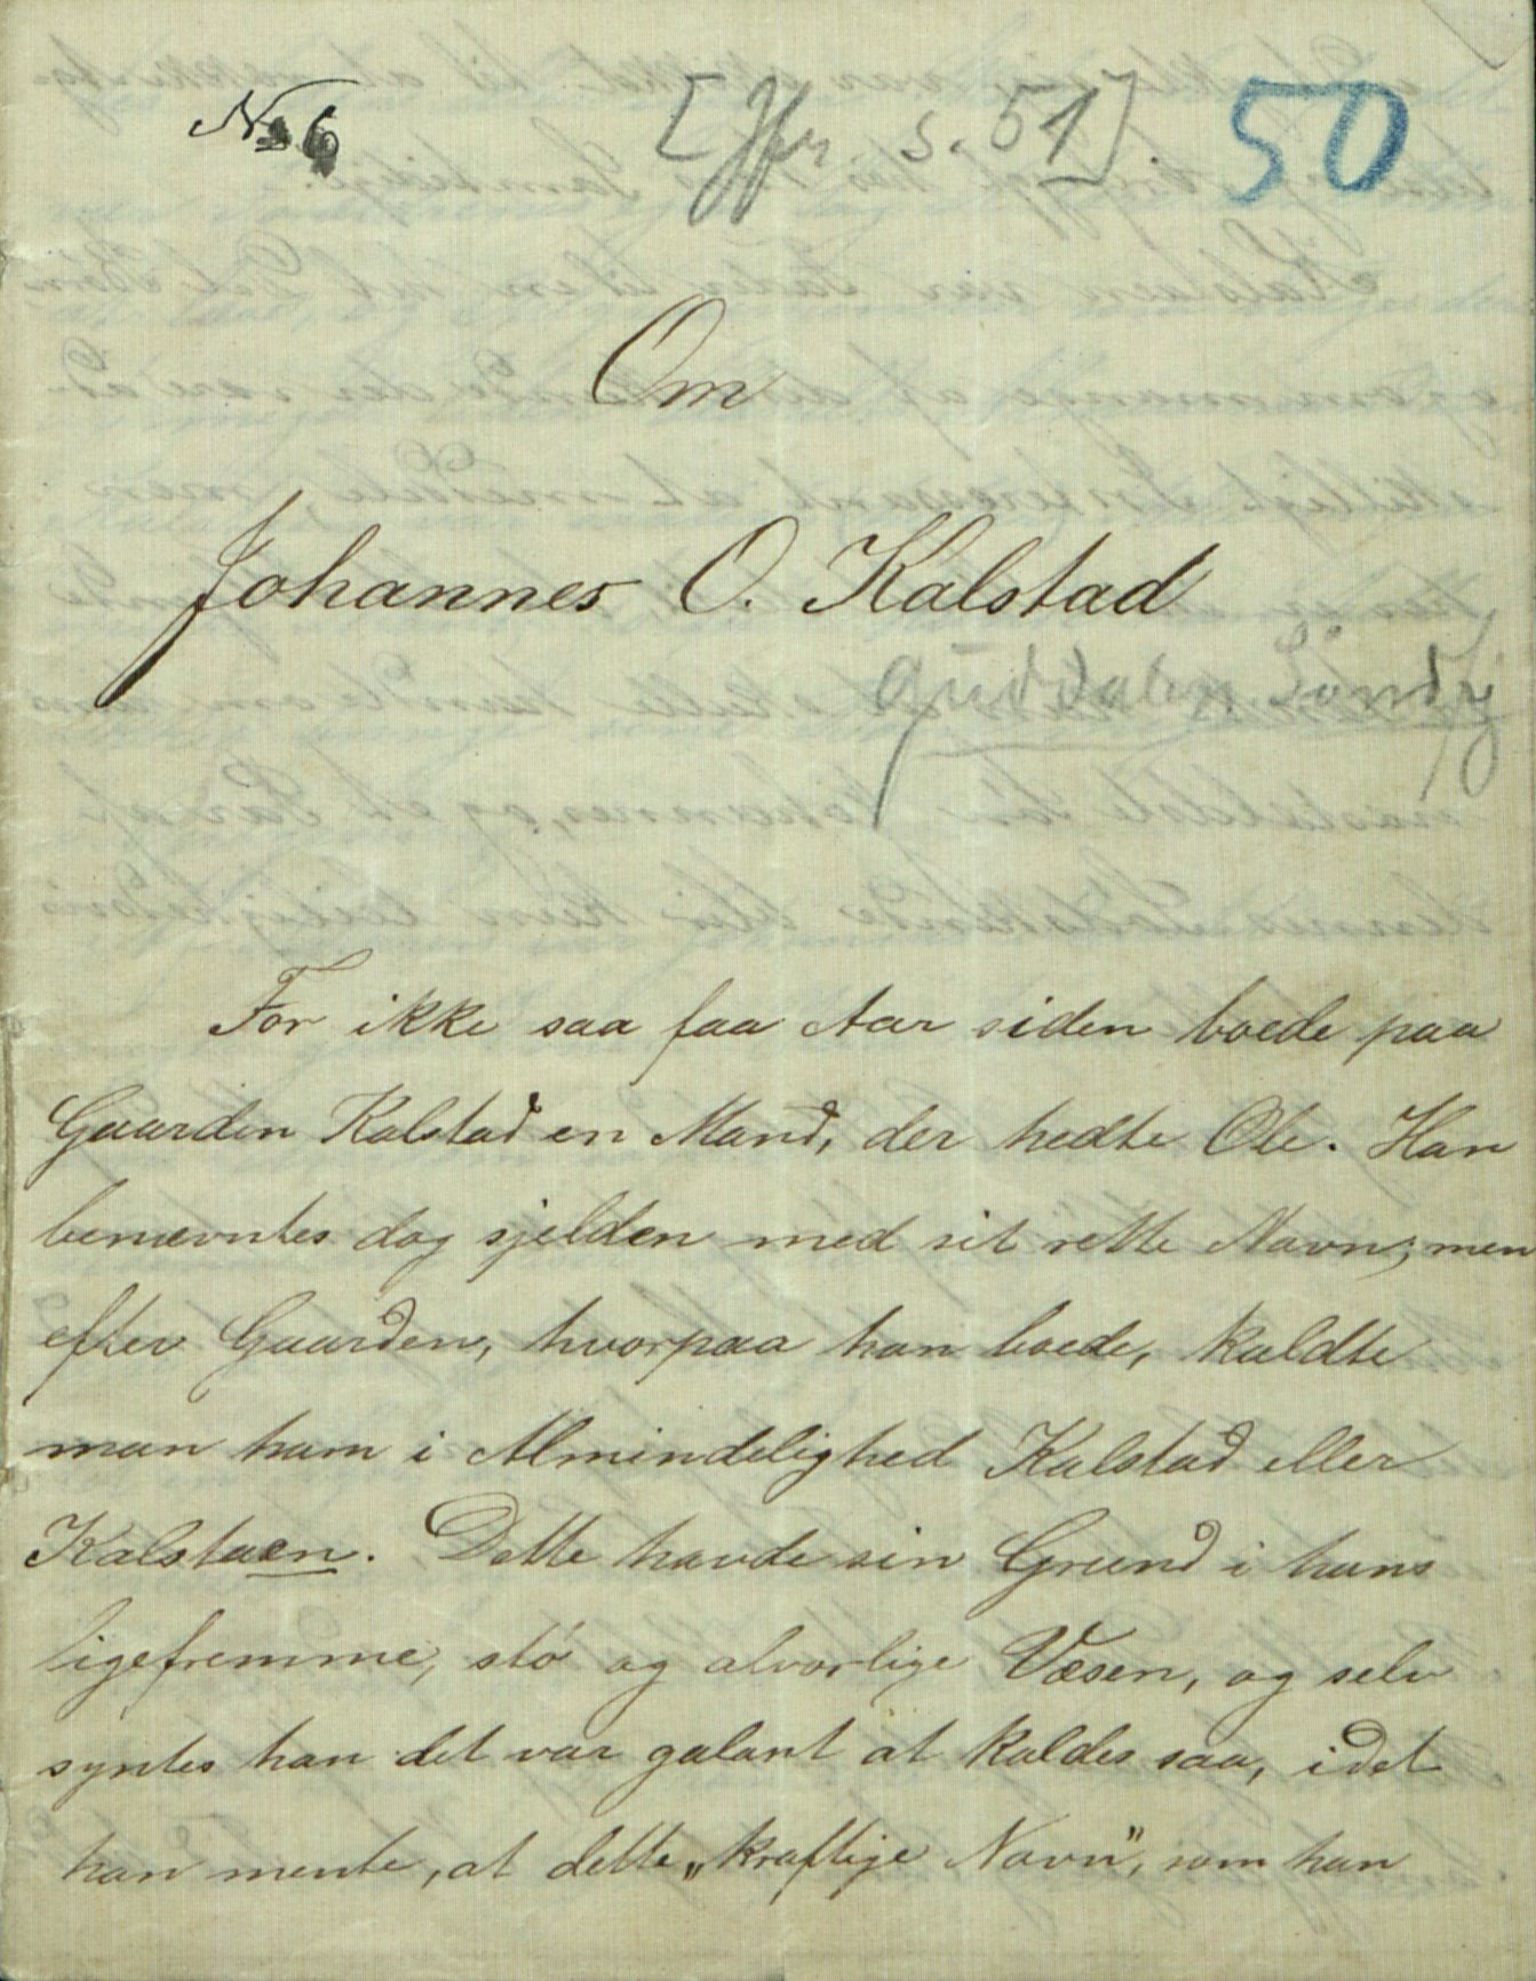 No 6
[Jfr. s. 51].
50
Om
Johannes O. Kalstad
Guddalen Söndfj
For ikke saa faa Aar siden boede paa
Gaarden Kalstad en Mand, der hedte Ole. Han
benævntes dog sjelden med sit rette Navn; men
efter Gaarden, hvorpaa han boede, kaldte
man ham i Almindelighed Kalstad eller
Kalstaen. Dette havde sin Grund i hans
ligefremme, stö og alvorlige Væsen, og selv
syntes han det var galant at kaldes saa, idet
han mente, at dette „kraftige Navn", som han